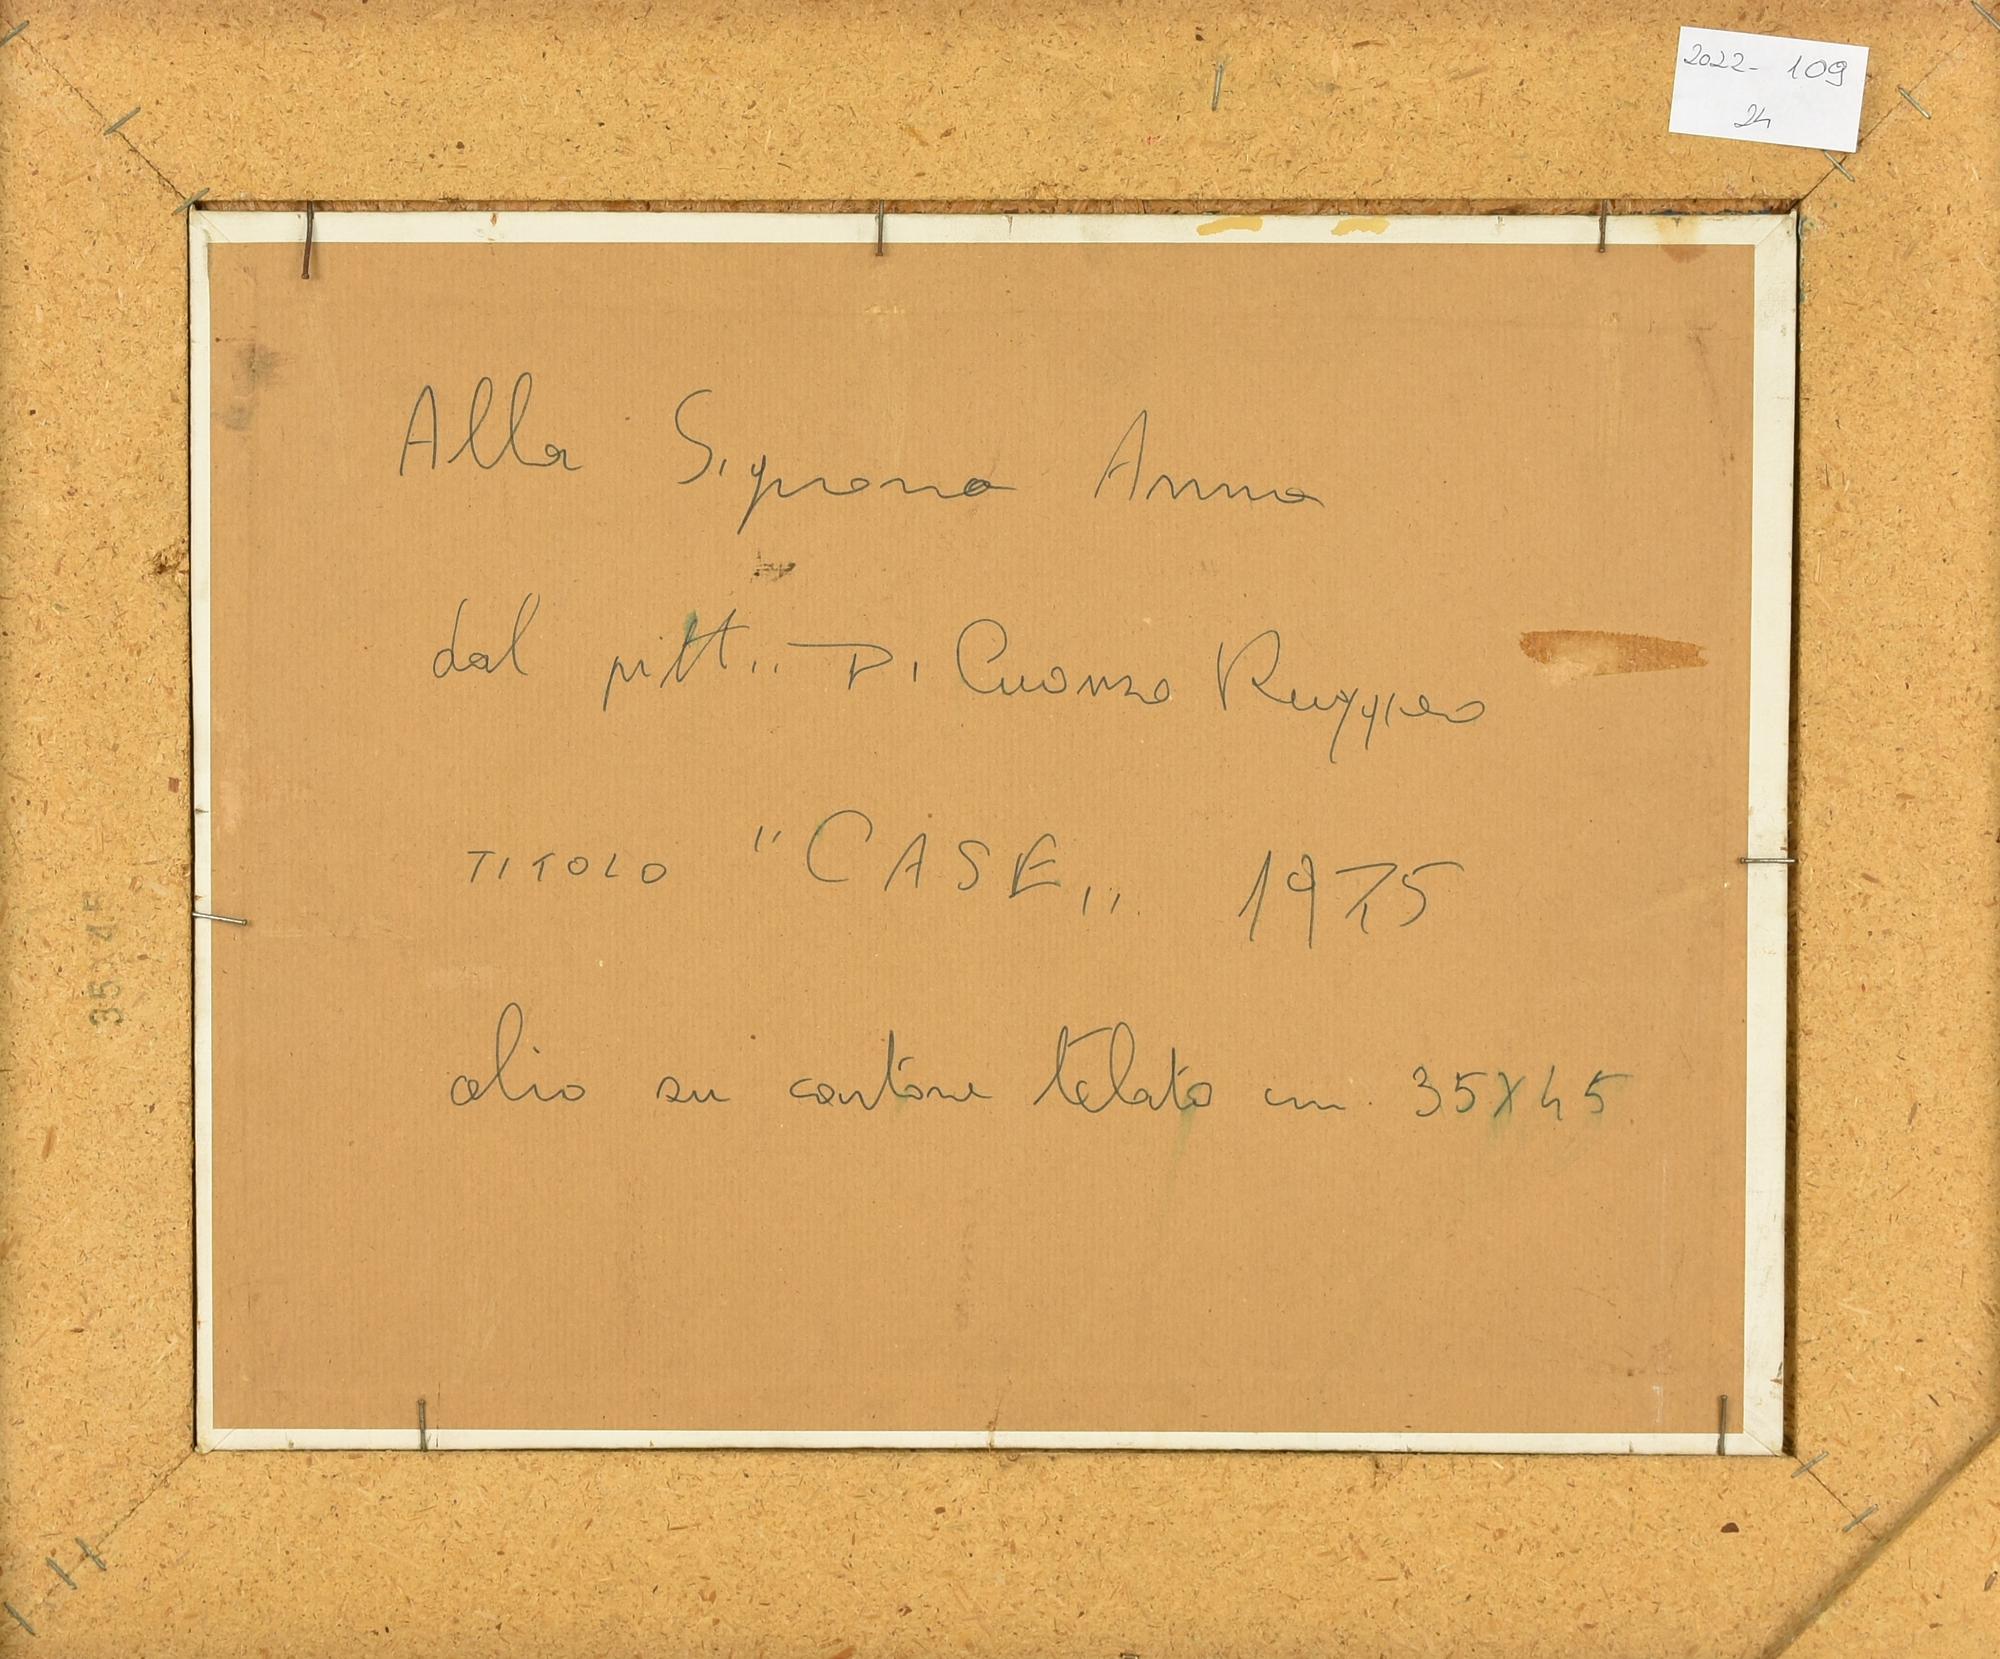 2022- 109
24
Alla Signora Anna
dal pitt.. Di Cuonzo Ruggiero
TITOLO "CASE,, 1975
olio su cartone telato cm. 35X45
35X45